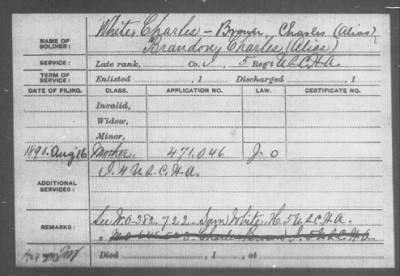 NAME OF SOLDIER: White, Charles – Brown, Charles (Alias)
Brandon, Charles (Alias)
SERVICE: Late rank, Co. I, 5 Reg't U.S.C.H.A.
TERM OF SERVICE: Enlisted , 1 Discharged , 1
DATE OF FILING. CLASS. APPLICATION NO. LAW. CERTIFICATE NO.
Invalid,
Widow,
Minor,
1890. Aug 16 Mother 471,046 J. O
ADDITIONAL SERVICES: I. 4 U.S.C.H.A.
REMARKS: See W.O. 382,722 White H. 5 U.S.C.H.A.
Died , 1 , at